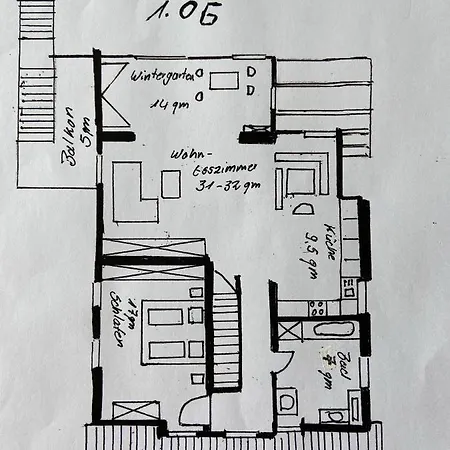 1.OG
Wintergarten
14 qm
Balkon
5qm
Wohn-
Esszimmer
31-32 qm
Küche
9,5 qm
17qm
Schlafen
Bad
7 qm